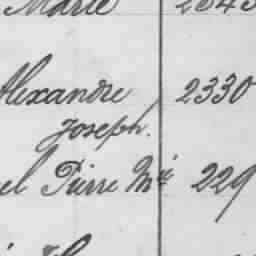 Marie
Alexandre 2330
Joseph.
el Pierre Mie 229